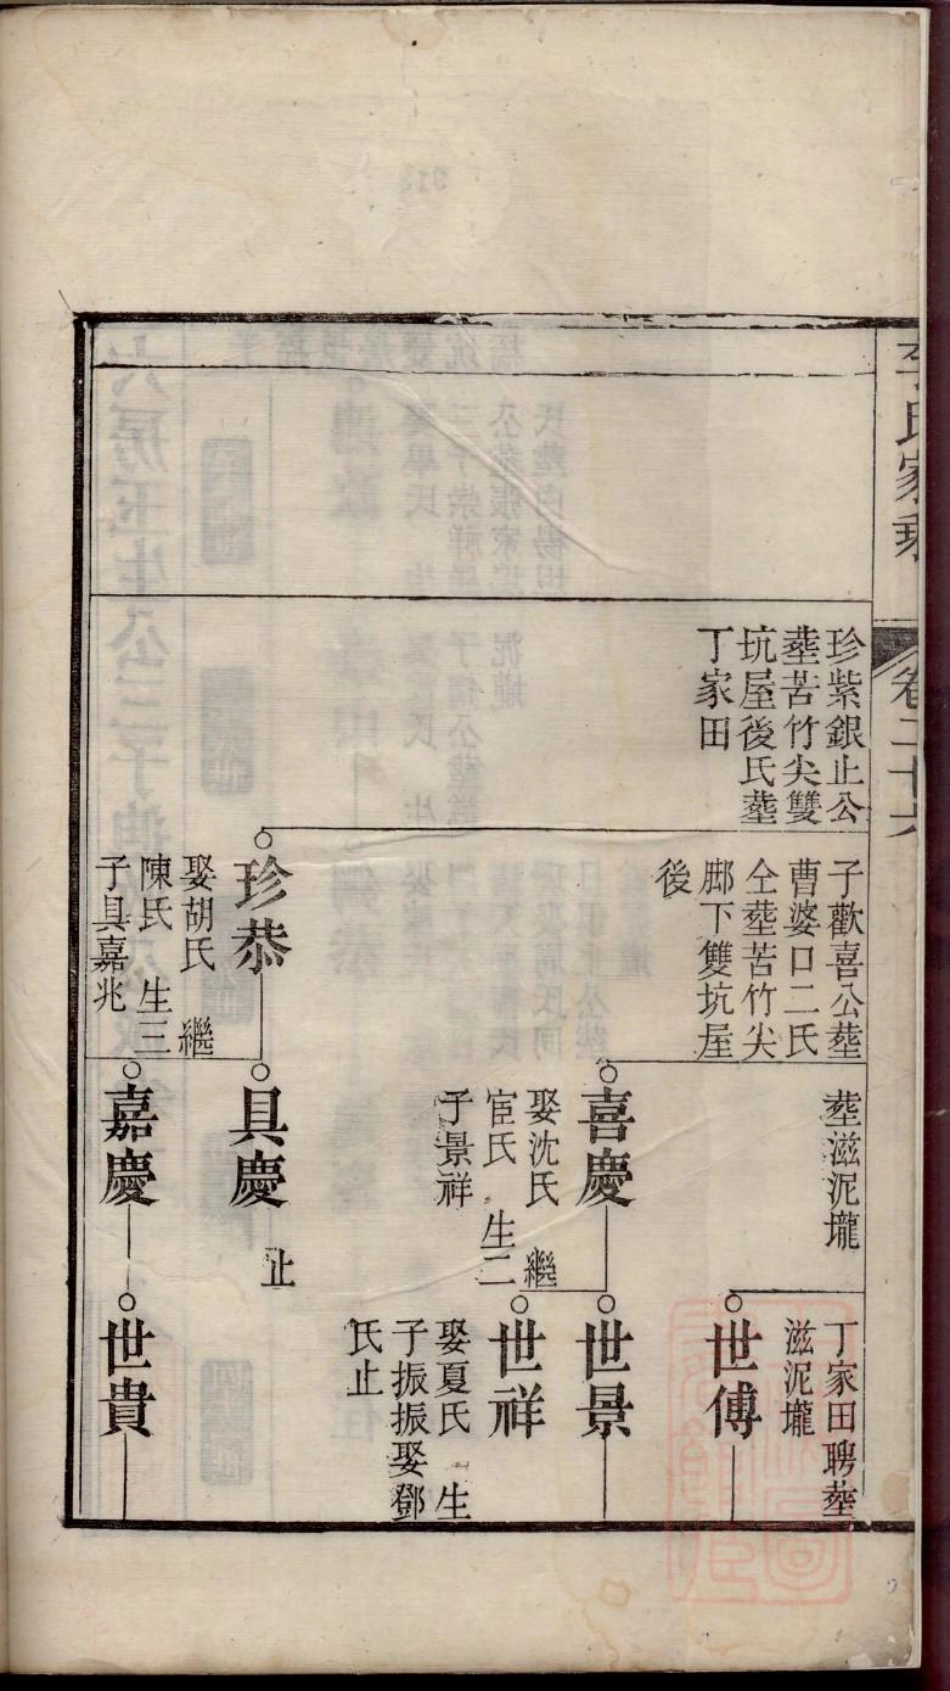 氏家乘
卷二十六
珍紫銀止公
塟苦竹尖雙
坑屋後氏塟
丁家田
子歡喜公塟
曹婆口二氏
仝塟苦竹尖
脚下雙坑屋
後
珍恭
娶胡氏 繼
陳氏 生三
子具嘉兆
塟滋泥壠
喜慶
娶沈氏 繼
宦氏 生二
子景祥
具慶
止
嘉慶
丁家田聘塟
滋泥壠
世傅
世景
世祥
娶夏氏 生
子振振娶鄧
氏止
世貴